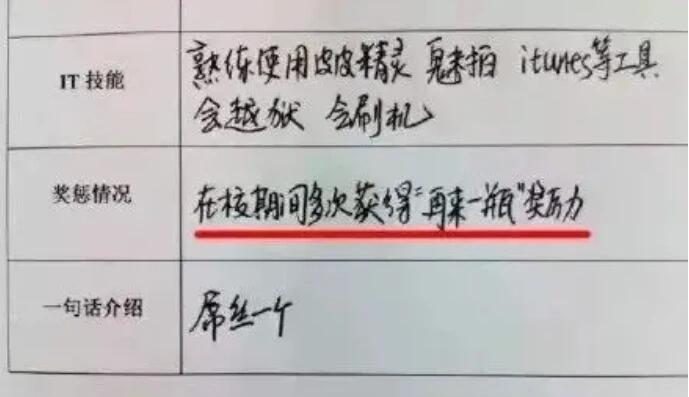 IT 技能
熟练使用皮皮精灵 魅拍 itunes等工具
会越狱 会刷机
奖惩情况
在校期间多次获得“再来一瓶”奖励
一句话介绍
屌丝一个